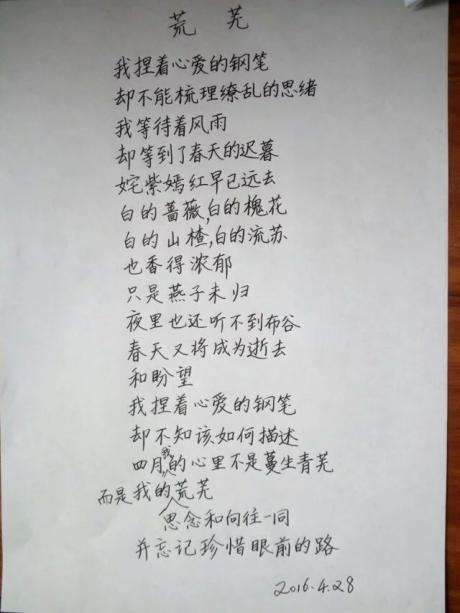 荒芜
我捏着心爱的钢笔
却不能梳理缭乱的思绪
我等待着风雨
却等到了春天的迟暮
姹紫嫣红早已远去
白的蔷薇,白的槐花
白的山楂,白的流苏
也香得浓郁
只是燕子未归
夜里也还听不到布谷
春天又将成为逝去
和盼望
我捏着心爱的钢笔
却不知该如何描述
四月我的心里不是蔓生青芜
而是我的荒芜
思念和向往一同
并忘记珍惜眼前的路
2016.4.28